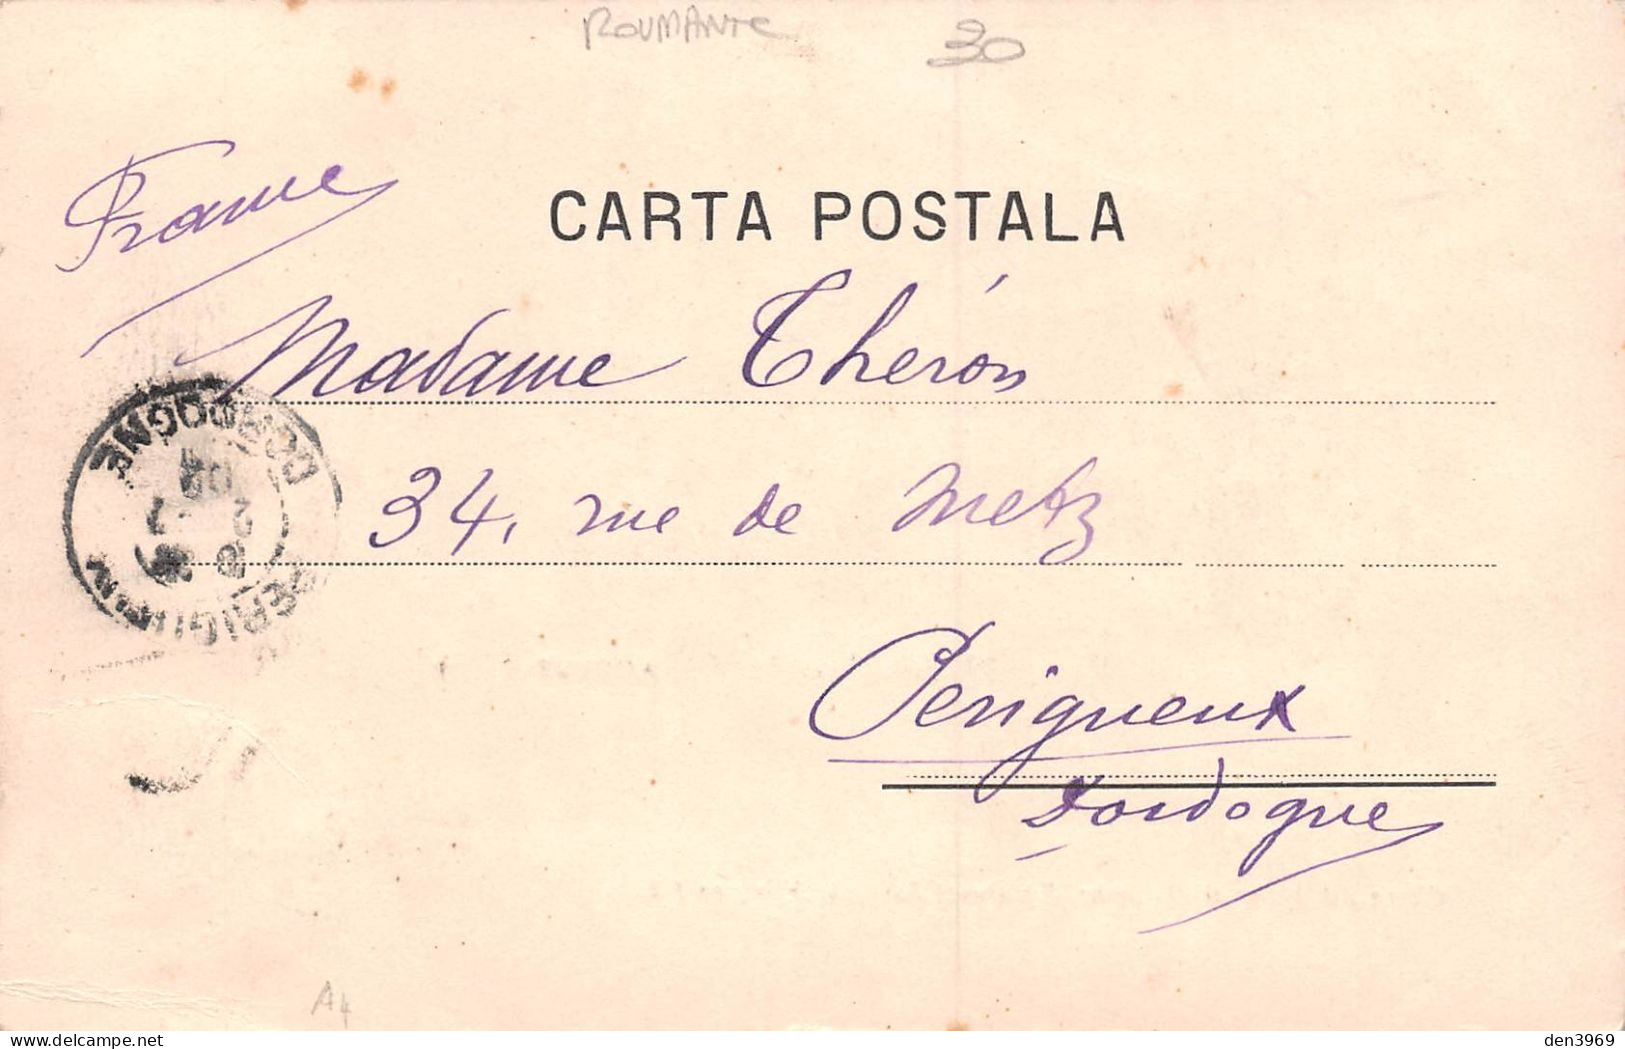 ROUMANIE
30
France
CARTA POSTALA
Madame Therón
34, rue de Metz
Perigueux
Dordogne
PERIGUEUX
DORDOGNE
A4
den3969